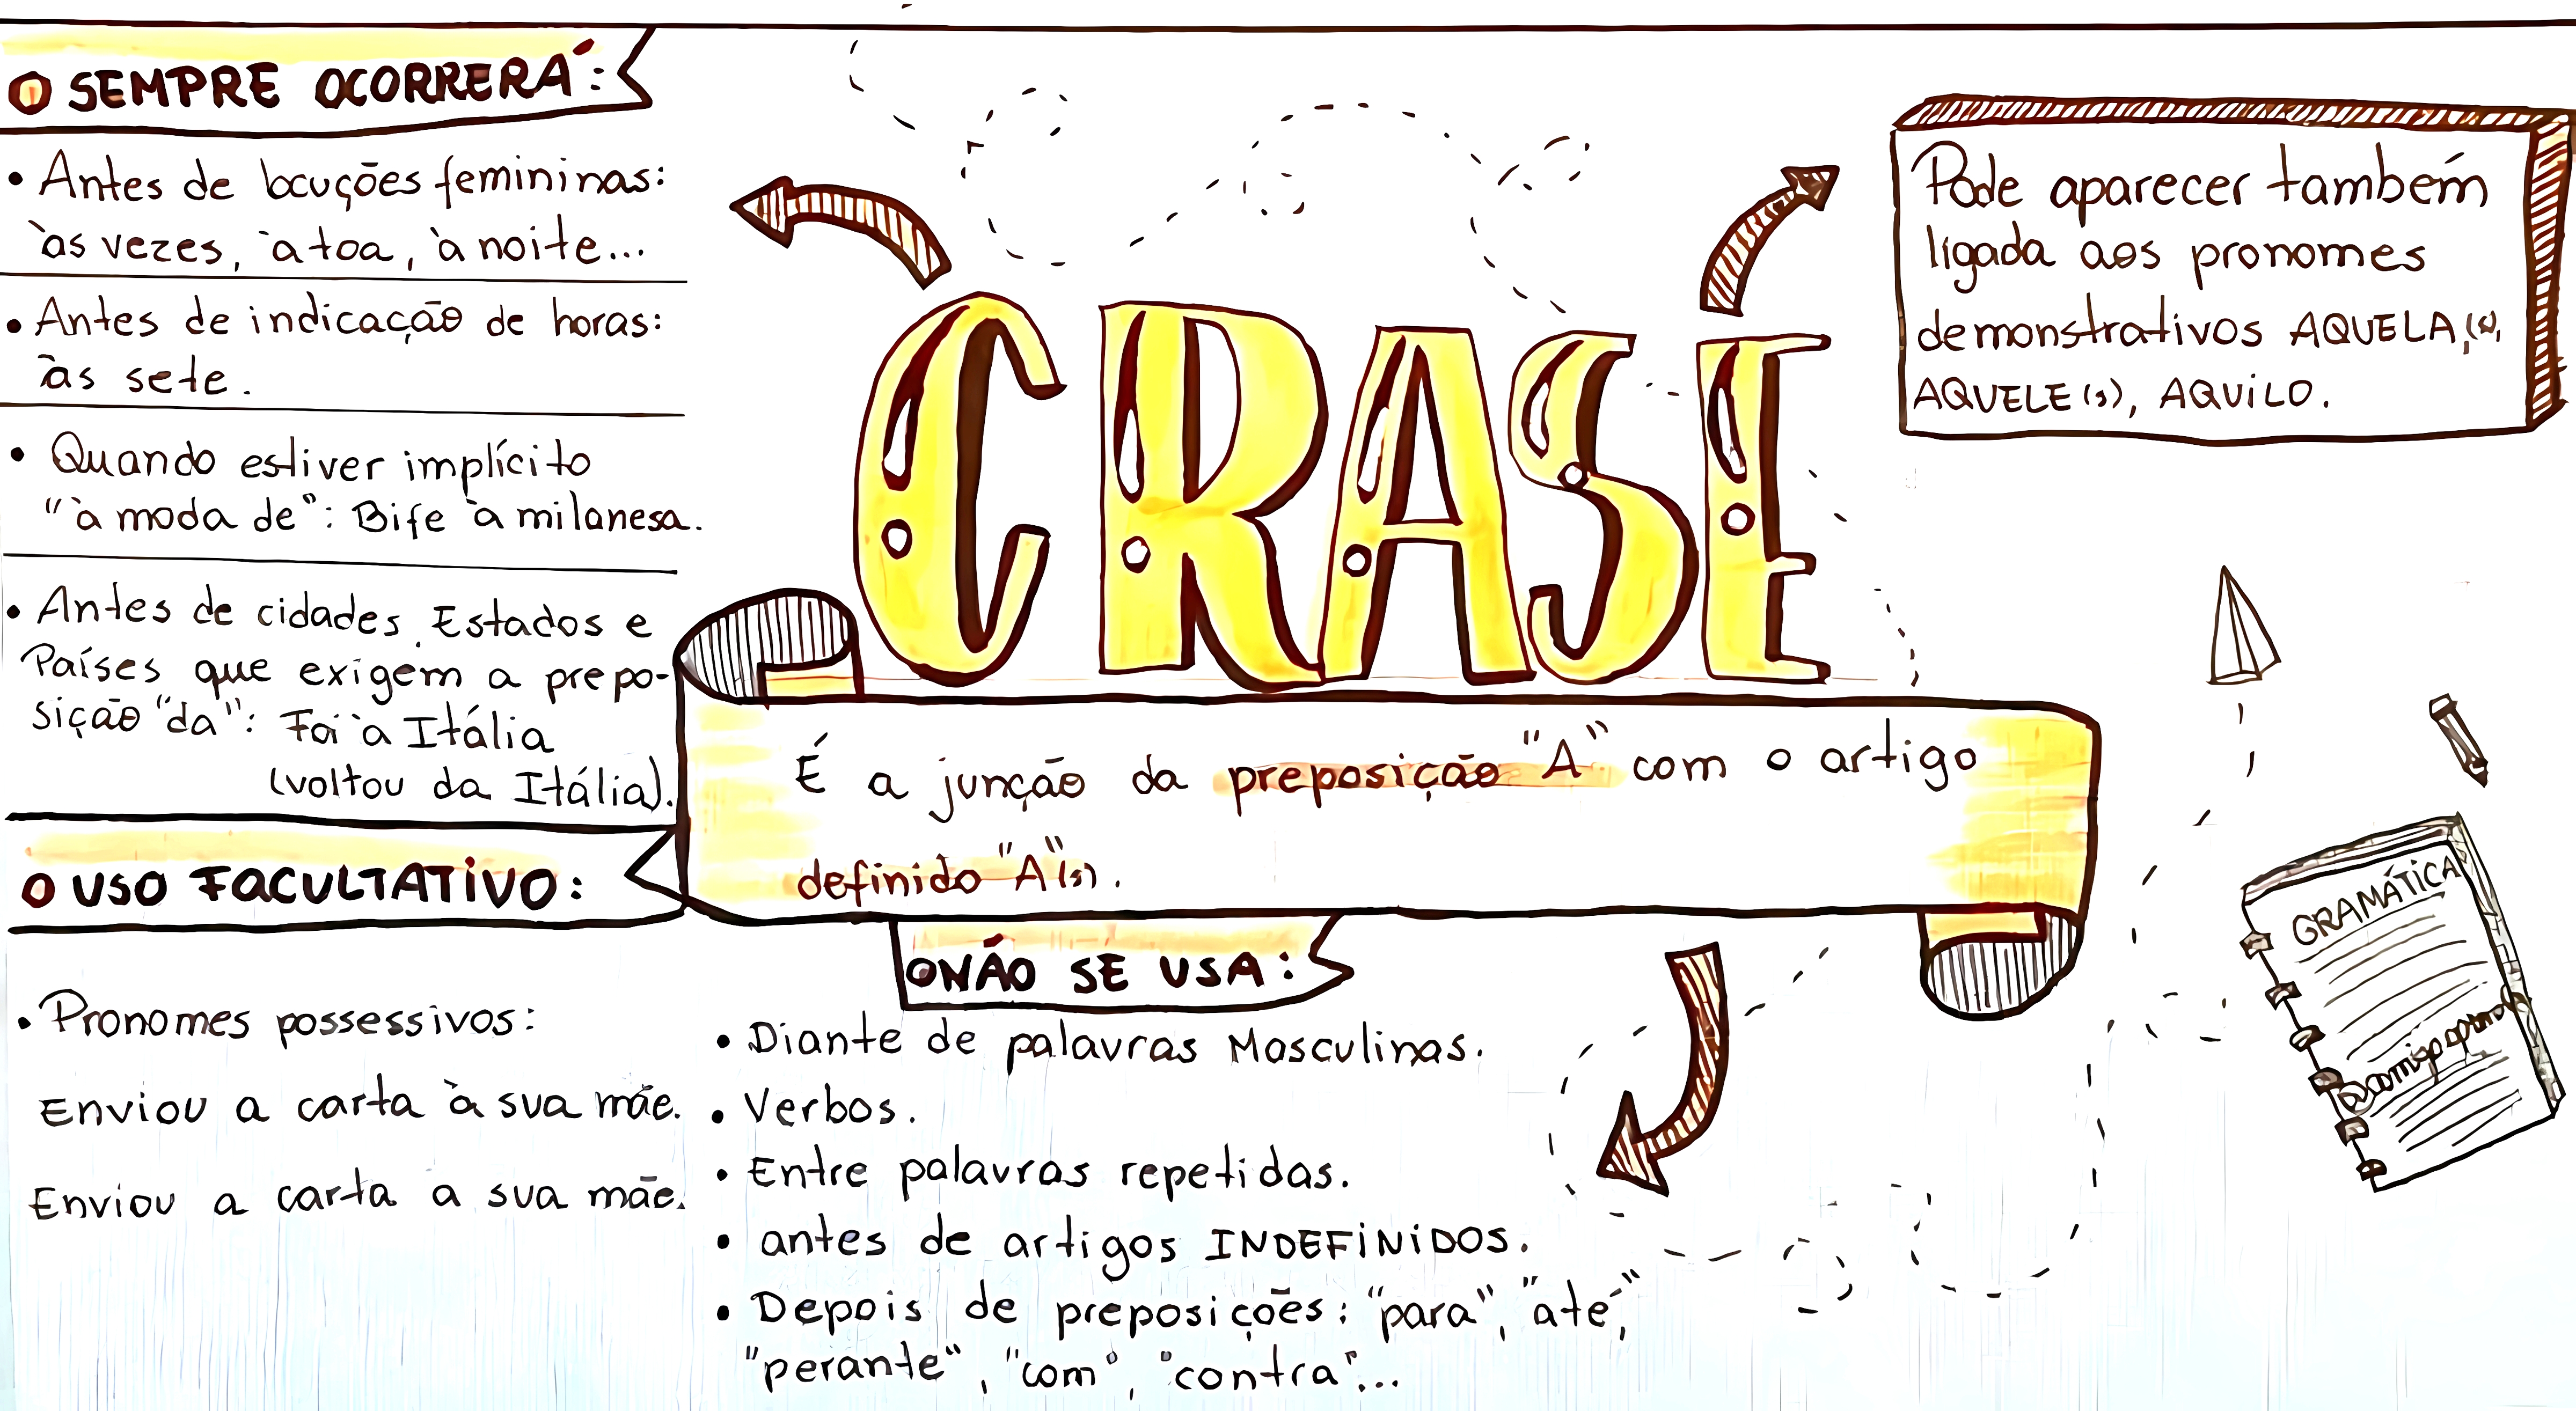 SEMPRE OCORRERÁ:
• Antes de locuções femininas:
às vezes, à toa, à noite...
• Antes de indicação de horas:
às sete.
• Quando estiver implícito
"à moda de": Bife à milanesa.
• Antes de cidades, Estados e
Países que exigem a prepo-
sição "da": Foi à Itália
(voltou da Itália).
USO FACULTATIVO:
• Pronomes possessivos:
Enviou a carta à sua mãe.
Enviou a carta a sua mãe.
CRASE
É a junção da preposição "A" com o artigo
definido "A"(s).
NÃO SE USA:
• Diante de palavras Masculinas.
• Verbos.
• Entre palavras repetidas.
• antes de artigos INDEFINIDOS.
• Depois de preposições: "para", "até",
"perante", "com", "contra"...
Pode aparecer também
ligada aos pronomes
demonstrativos AQUELA(s),
AQUELE(s), AQUILO.
GRAMÁTICA